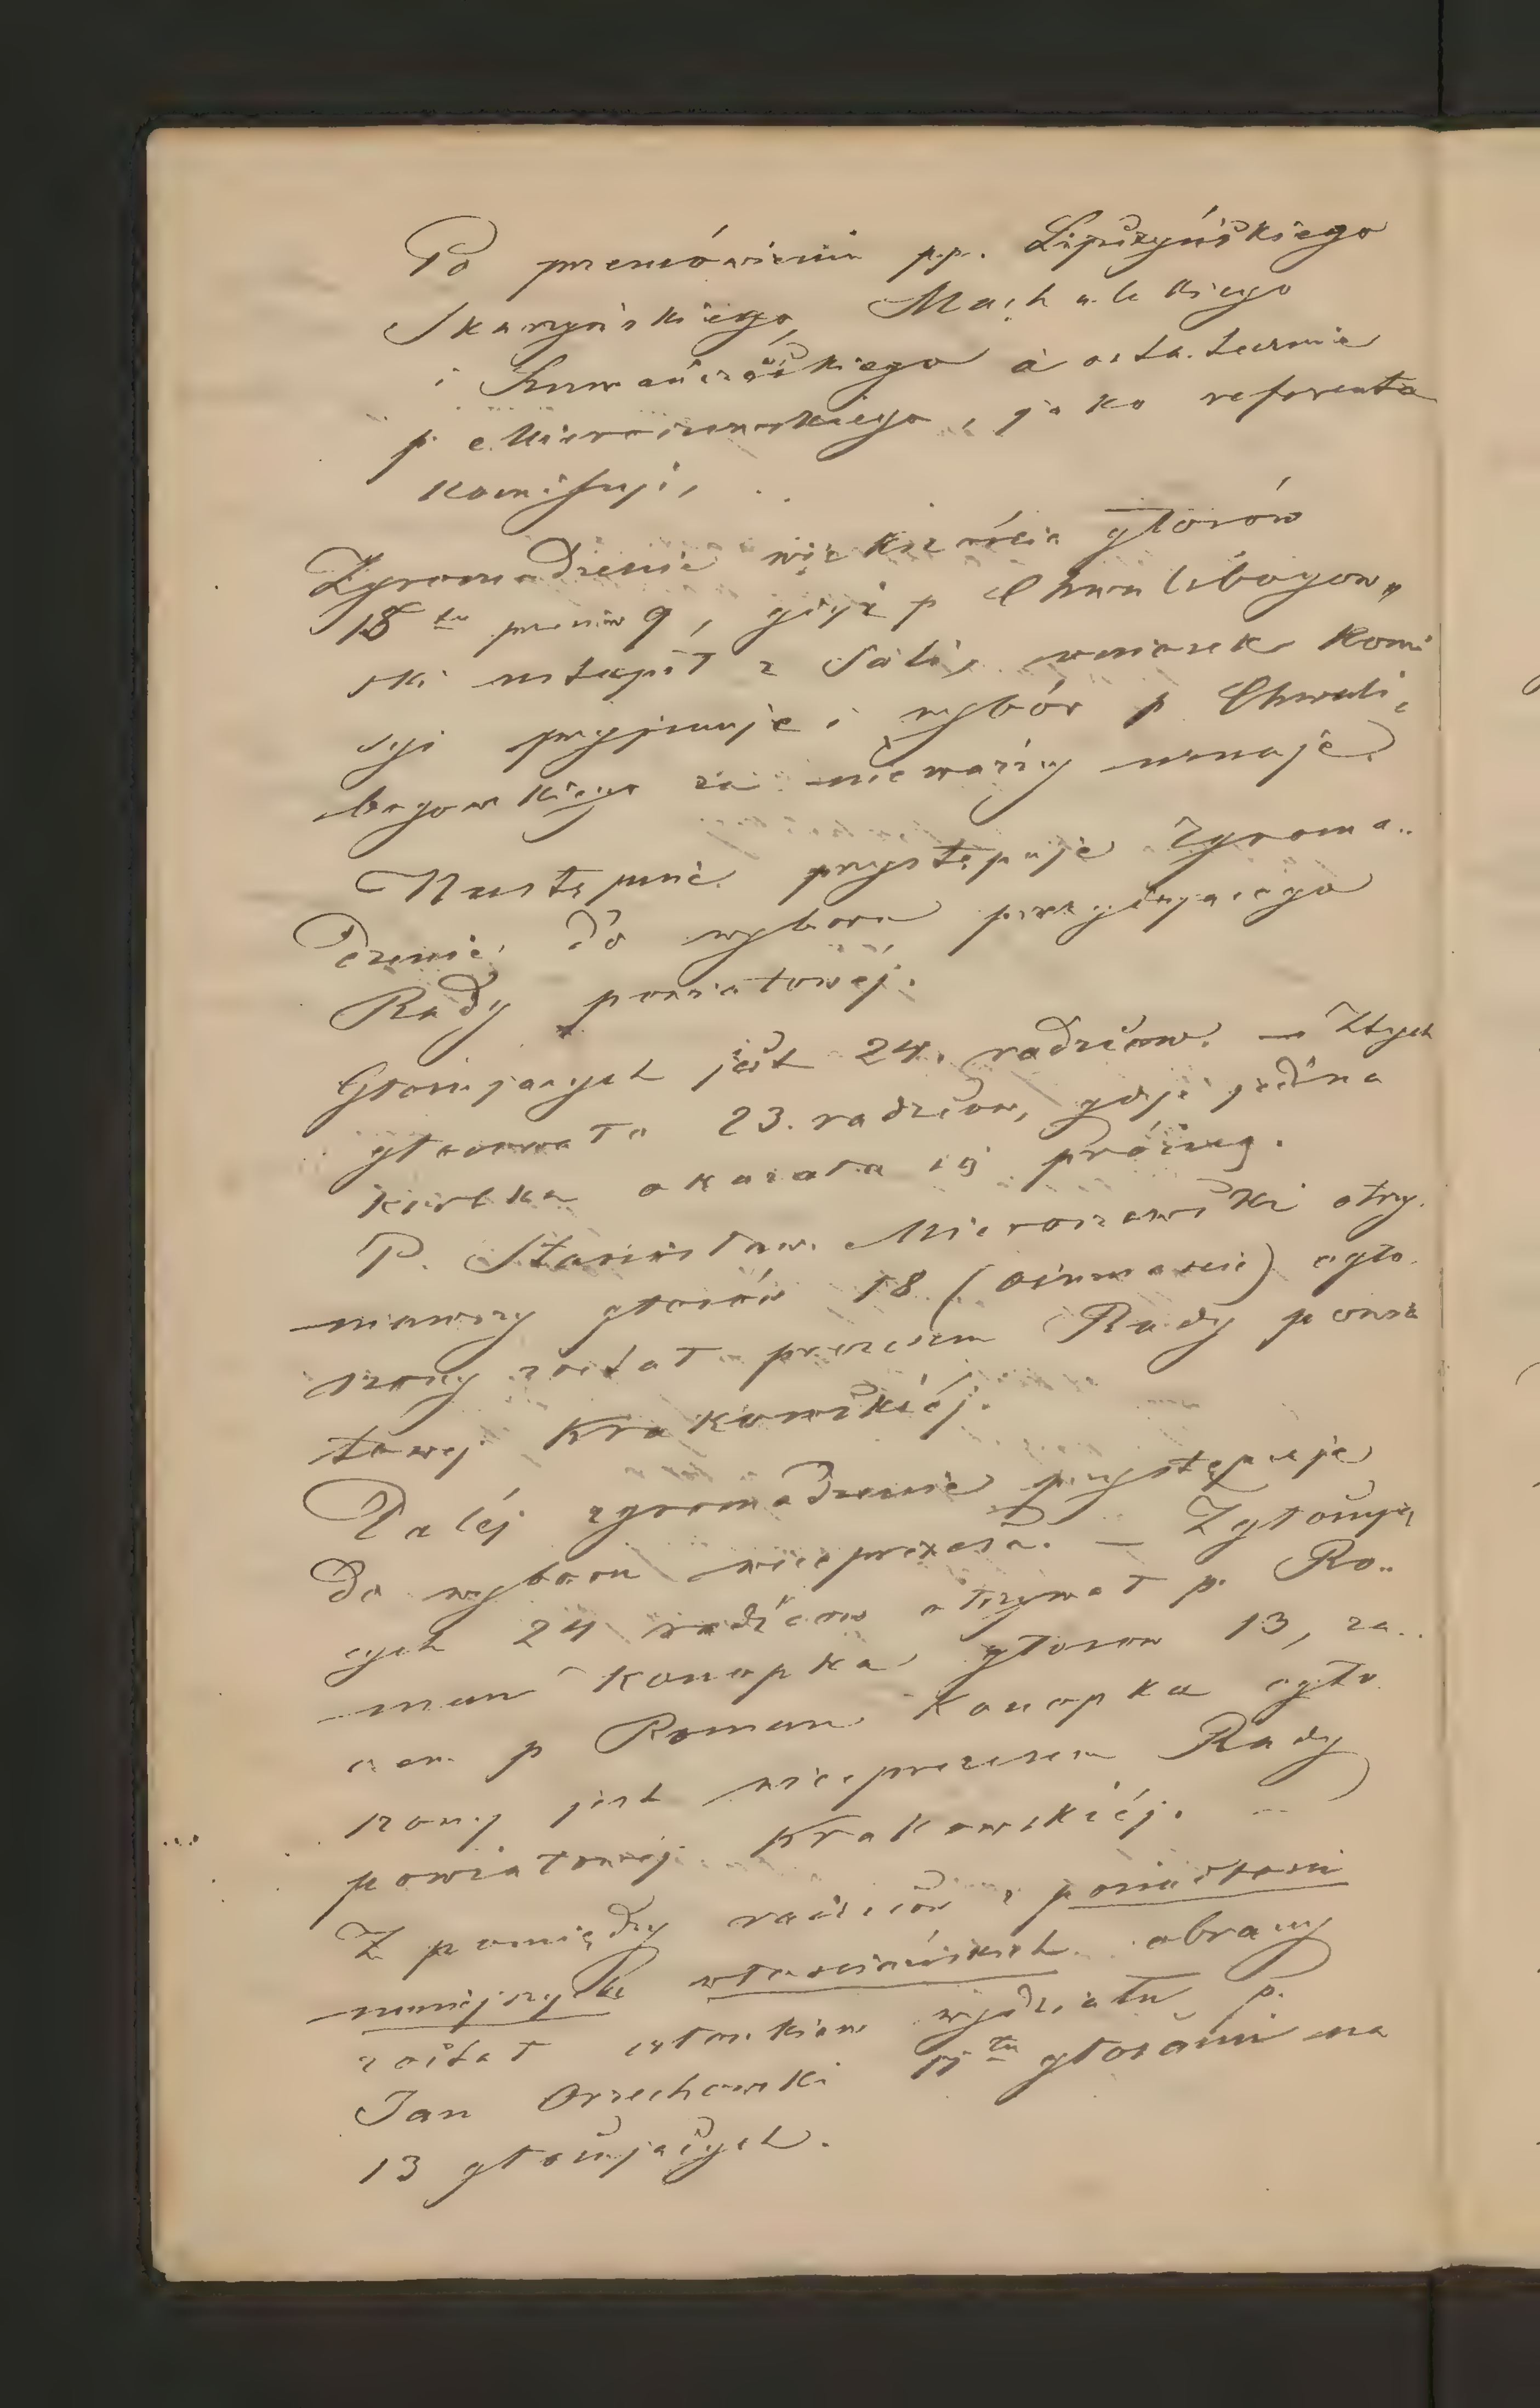 Po przemówieniu pp. Lipczyńskiego
Skarzyńskiego, Machalskiego
i Szumańczowskiego a ostatecznie
p. Mieroszewskiego, jako referenta
Komissyi,
Zgromadzenie większością głosów
18tu przeciw 9, gdyż p Chwalibogow„
ski ustąpił z Sali, wniosek Komi
syi przyjmuje i wybór p Chwali„
bogowskiego za nieważny uznaje.
Następnie przystępuje zgroma„
dzenie do wyboru
Rady powiatowéj.
Głosujących jest 24. radzców. — Ztych
głosowało 23. radzców, gdyż jedna
kartka okazała się próżną.
P. Stanisław Mieroszewski otrzy„
mawszy głosów 18 (ośmnaście) ogło„
szony został prezesem Rady powia
towej Krakowskiéj.
Daléj zgromadzenie przystępuje
do wyboru wiceprezesa. — Z głosują
cych 24 radzców otrzymał p. Ro„
man Konopka głosów 13, za„
czem p Roman Konopka ogło
szony jest wiceprezesem Rady
powiatowéj Krakowskiéj. —
Z pomiędzy radzców z posiadłości
mniejszych włościańskich obrany
został członkiem wydziału p.
Jan Orzechowski 11tu głosami na
13 głosujących.